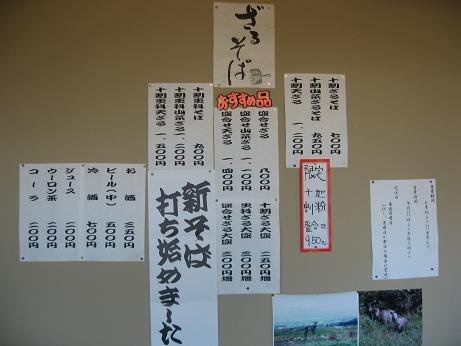 ざるそば
十割ざるそば 七〇〇円
十割山菜ざる 九五〇円
十割天ざる 一、三〇〇円
おすすめ品
盛合せざる 八〇〇円
盛合せ山菜ざる 一、一〇〇円
盛合せ天ざる 一、四〇〇円
十割ざる大盛 二五〇円増
更科ざる大盛 三〇〇円増
盛合せざる大盛 三〇〇円増
十割更科そば 九〇〇円
十割更科山菜ざる 一、二〇〇円
十割更科天ざる 一、五〇〇円
新そば
打ち始めました
お酒 三五〇円
ビール(中) 五五〇円
冷酒 七〇〇円
ジュース 二〇〇円
ウーロン茶 二〇〇円
コーラ 二〇〇円
限定
十割
950